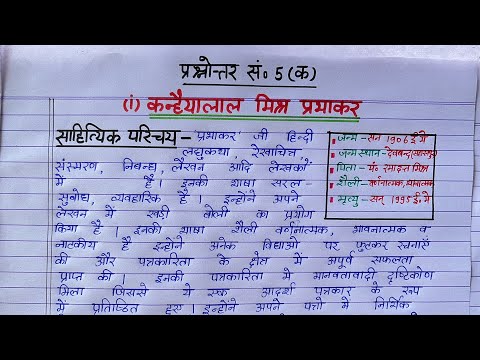 प्रश्नोत्तर सं० 5 (क)
(i) कन्हैयालाल मिश्र प्रभाकर
साहित्यिक परिचय – 'प्रभाकर' जी हिन्दी
लघुकथा, रेखाचित्र
संस्मरण, निबन्ध, लेखन आदि लेखकों
में हैं। इनकी भाषा सरल –
सुबोध, व्यवहारिक है इन्होंने अपने
लेखन में खड़ी बोली का प्रयोग
किया है। इनकी भाषा शैली वर्णनात्मक, भावनात्मक व
नाटकीय है इन्होंने अनेक विद्याओं पर फुटकर रचनाएँ
की और पत्रकारिता के क्षेत्र में अपूर्व सफलता
प्राप्त की। इनकी पत्रकारिता में मानवतावादी दृष्टिकोण
मिला जिससे ये एक आदर्श पत्रकार के रूप
में प्रतिष्ठित हुए। इन्होंने अपने पत्रो में निर्सिक
जन्म – सन 1906 ई में
जन्म स्थान – देवबन्द(सहारनपुर)
पिता – पं० रमादत्त मिश्र
शैली – वर्णनात्मक,
मृत्यु – सन् 1995 ई में